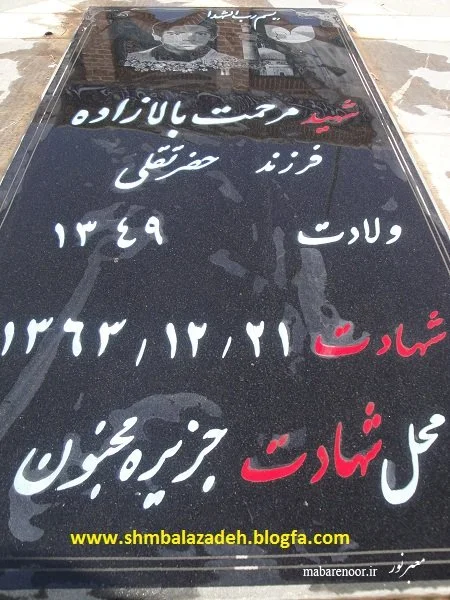 بسم رب الشهدا
شهید مرحمت بالازاده
فرزند حضرتقلی
ولادت ۱۳۴۹
شهادت ۱۳۶۳/۱۲/۲۱
محل شهادت جزیره مجنون
www.shmbalazadeh.blogfa.com
معبر نور
mabarenoor.ir